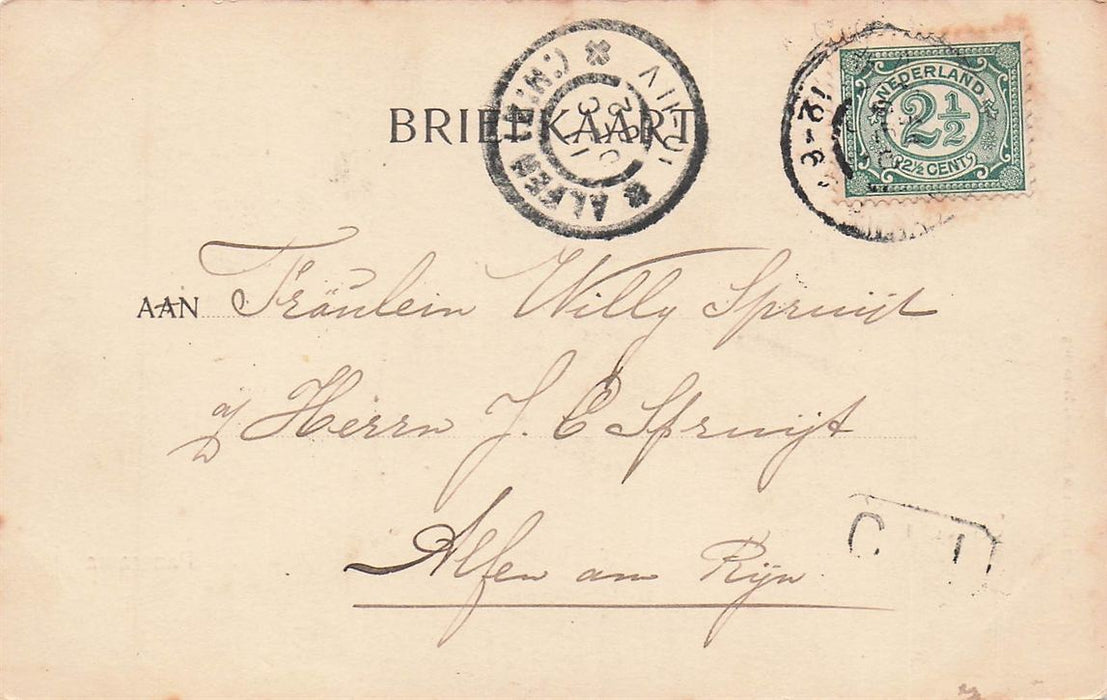 BRIEFKAART
ALFEN
NEDERLAND
2½
2½ CENT
AAN Fräulein Willy Spruijt
a/ Herrn J. C Spruijt
Alfen am Rijn